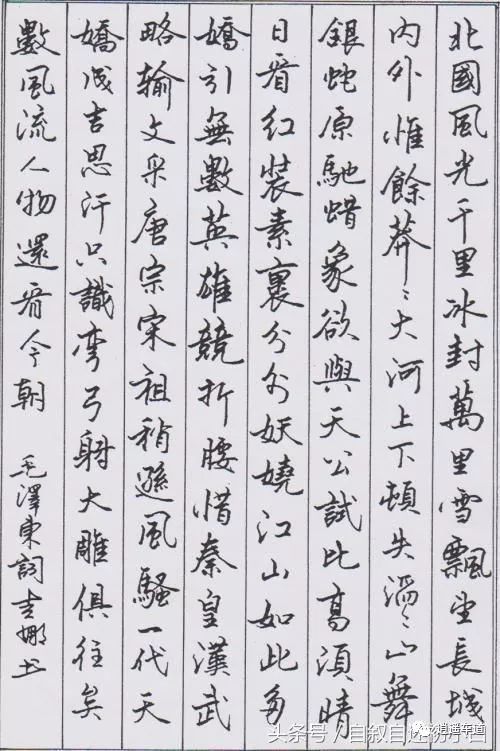 北國風光千里冰封萬里雪飄望長城
內外惟餘莽〻大河上下頓失滔〻山舞
銀蛇原馳蜡象欲與天公試比高須晴
日看紅裝素裹分外妖嬈江山如此多
嬌引無數英雄競折腰惜秦皇漢武
略輸文采唐宗宋祖稍遜風騷一代天
嬌成吉思汗只識彎弓射大雕俱往矣
數風流人物還看今朝 毛澤東詞吉娜书
头条号 / 自叙自述
逍遥车道